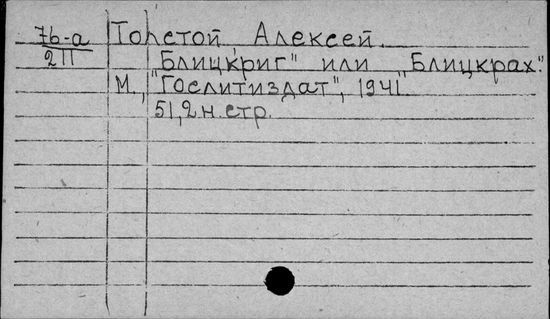 7б-а Толстой Алексей.
2П "Блицкриг" или "Блицкрах".
М., "Гослитиздат", 1941.
51,2 н. стр.